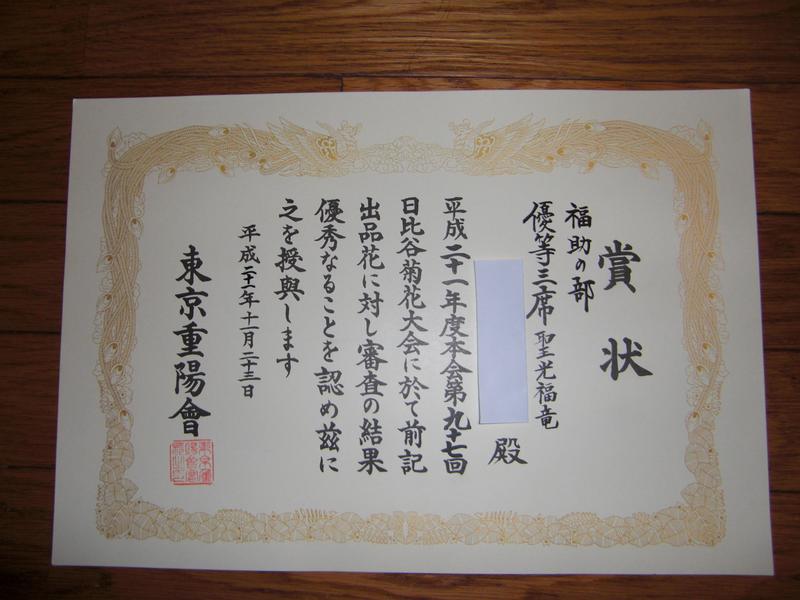 賞状
福助の部
優等三席 聖光福竜
殿
平成二十一年度本会第九十七回
日比谷菊花大会に於て前記
出品花に対し審査の結果
優秀なることを認め茲に
之を授與します
平成二十一年十一月二十三日
東京重陽會